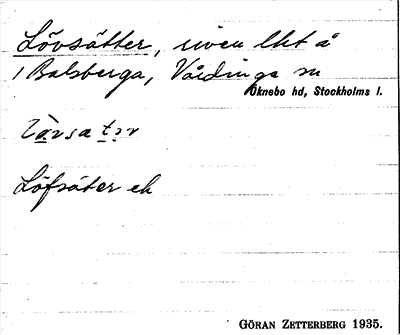 Lövsätter, riven lht å
1 Balsberga, Vårdinge sn
Öknebo hd, Stockholms l.
Löfsäter ek
GÖRAN ZETTERBERG 1935.